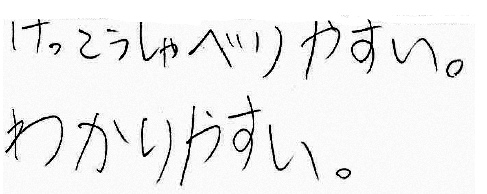 けっこうしゃべりやすい。
わかりやすい。